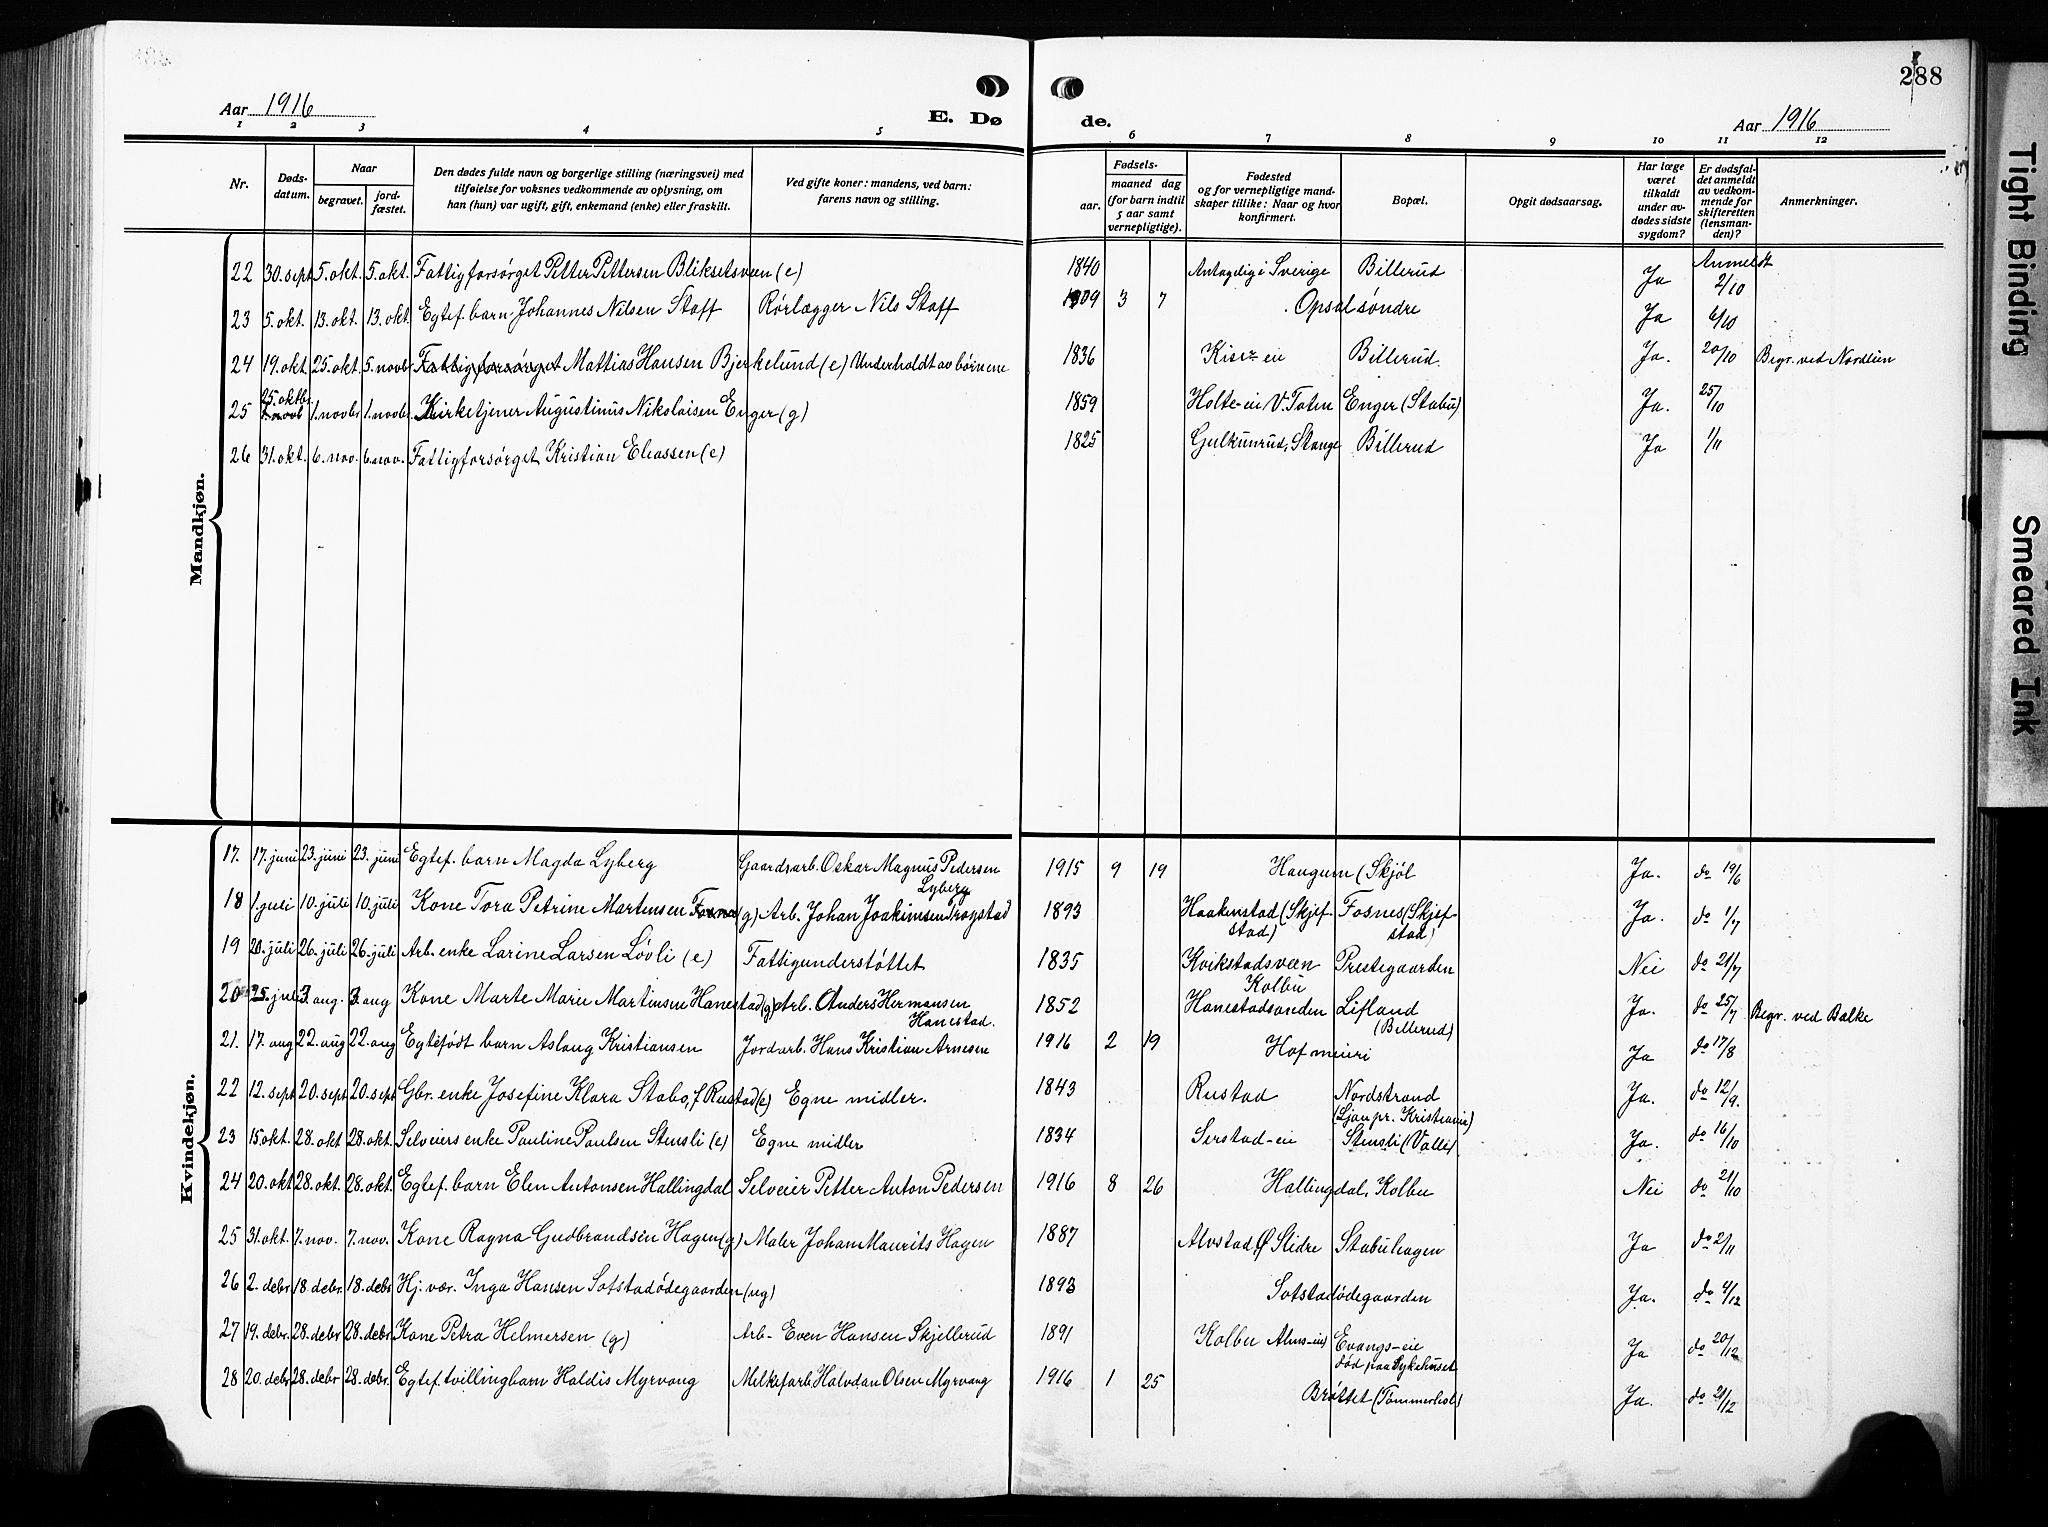 288
Aar 1916
E. Dø
de.
Aar 1916
1 2 3 4 5 6 7 8 9 10 11 12
Nr.
Døds-
datum.
Naar
begravet.
jord-
fæstet.
Den dødes fulde navn og borgerlige stilling (næringsvei) med
tilføielse for voksnes vedkommende av oplysning, om
han (hun) var ugift, gift, enkemand (enke) eller fraskilt.
Ved gifte koner: mandens, ved barn:
farens navn og stilling.
Fødsels-
aar.
maaned dag
(for barn indtil
5 aar samt
vernepligtige).
Fødested
og for vernepligtige mand-
skaper tillike: Naar og hvor
konfirmert.
Bopæl.
Opgit dødsaarsag.
Har læge
været
tilkaldt
under av-
dødes sidste
sygdom?
Er dødsfal-
det anmeldt
av vedkom-
mende for
skifteretten
(lensman-
den)?
Anmerkninger.
Mandkjøn.
22 30. sept 5. okt. 5. okt. Fattigforsørget Petter Pettersen Bliksetsveen (e) 1840 Antagelig i Sverige Billerud Ja Anmeldt 2/10
23 5. okt. 13. okt. 13. okt. Egtef. barn Johannes Nilsen Staff Rørlægger Nils Staff 1909 3 7 Opsal søndre Ja 6/10
24 19. okt. 25. okt. 5. novb. Fattigforsørget Mattias Hansen Bjerkelund (e) Underholdt av børnene 1836 Kise-eie Billerud. Ja. 20/10 Begr. ved Nordlien
25. oktbr.
25 1. novb 1. novbr. 1. novbr. Kirketjener Augustinus Nikolaisen Enger (g) 1859 Holte-eie V. Toten Enger (Stabu) Ja. 25/10
26 31. okt. 6. nov. 6. nov. Fattigforsørget Kristian Eliassen (e) 1825 Gulkunrud, Stange Billerud Ja 1/11
Kvindekjøn.
17. 17. juni 23. juni 23. juni Egtef. barn Magda Lyberg Gaardsarb. Oskar Magnus Pedersen Lyberg 1915 9 19 Haugum (Skjøl Ja. do 19/6
18 1. juli 10. juli 10. juli Kone Tora Petrine Martensen Fosnæs (g) Arb. Johan Joakimsen Trogstad 1893 Haakenstad (Skjef-
stad) Fosnes (Skjef-
stad) Ja. do 1/7
19 20. juli 26. juli 26. juli Arb. enke Larine Larsen Løvli (e) Fattigunderstøttet 1835 Kvikstadsveen
Kolbu Prestegaarden Nei do 21/7
20 25. juli 3. aug. 3. aug Kone Marte Marie Martinsen Hanestad (g) Arb. Anders Hermansen
Hanestad. 1852 Hanestadsanden Lifland
(Billerud) Ja. do 25/7 Begr. ved Balke
21. 17. aug 22. aug 22. aug Egtefødt barn Aslaug Kristiansen Jordarb. Hans Kristian Arnesen 1916 2 19 Hof meieri Ja do 17/8
22 12. sept 20. sept 20. sept Gbr. enke Josefine Klara Stabo, f. Rustad (e) Egne midler. 1843 Rustad Nordstrand
(Ljan pr. Kristiania) Ja. do 12/9.
23 15. okt. 28. okt 28. okt. Selveiers enke Pauline Paulsen Stensli (e) Egne midler 1834 Serstad-eie Stensli (Valle) Ja. do 16/10
24 20. okt 28. okt. 28. okt. Egtef. barn Elen Antonsen Hallingdal Selveier Petter Anton Pedersen 1916 8 26 Hallingdal, Kolbu Nei do 21/10
25 31. okt. 7. nov. 7. nov. Kone Ragna Gudbrandsen Hagen (g) Maler Johan Maurits Hagen 1887 Alvstad, Ø Slidre Stabuhagen Ja do 2/11
26 2. debr. 18 debr. 18. debr Hj. vær. Inga Hansen Sotstadødegaarden (ug) 1893 Sotstadødegaarden Ja. do 4/12
27 19. debr. 28. debr 28. debr Kone Petra Helmersen (g) Arb. Even Hansen Skjellerud 1891 Kolbu Evangs-eie
død paa Sykehuset Ja do 20/12
28 20. debr 28. debr 28. debr. Egtef. tvillingbarn Haldis Myrvang Melkefarb. Halvdan Olsen Myrvang 1916 1 25 Brøttet (Tømmerhol) Ja. do 21/12
Tight Binding
Smeared Ink